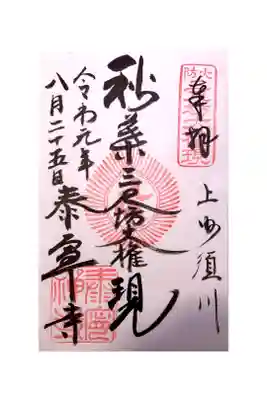 火防
奉拝
上州須川
秋葉三尺坊大権現
令和元年
八月二十五日
泰寧寺